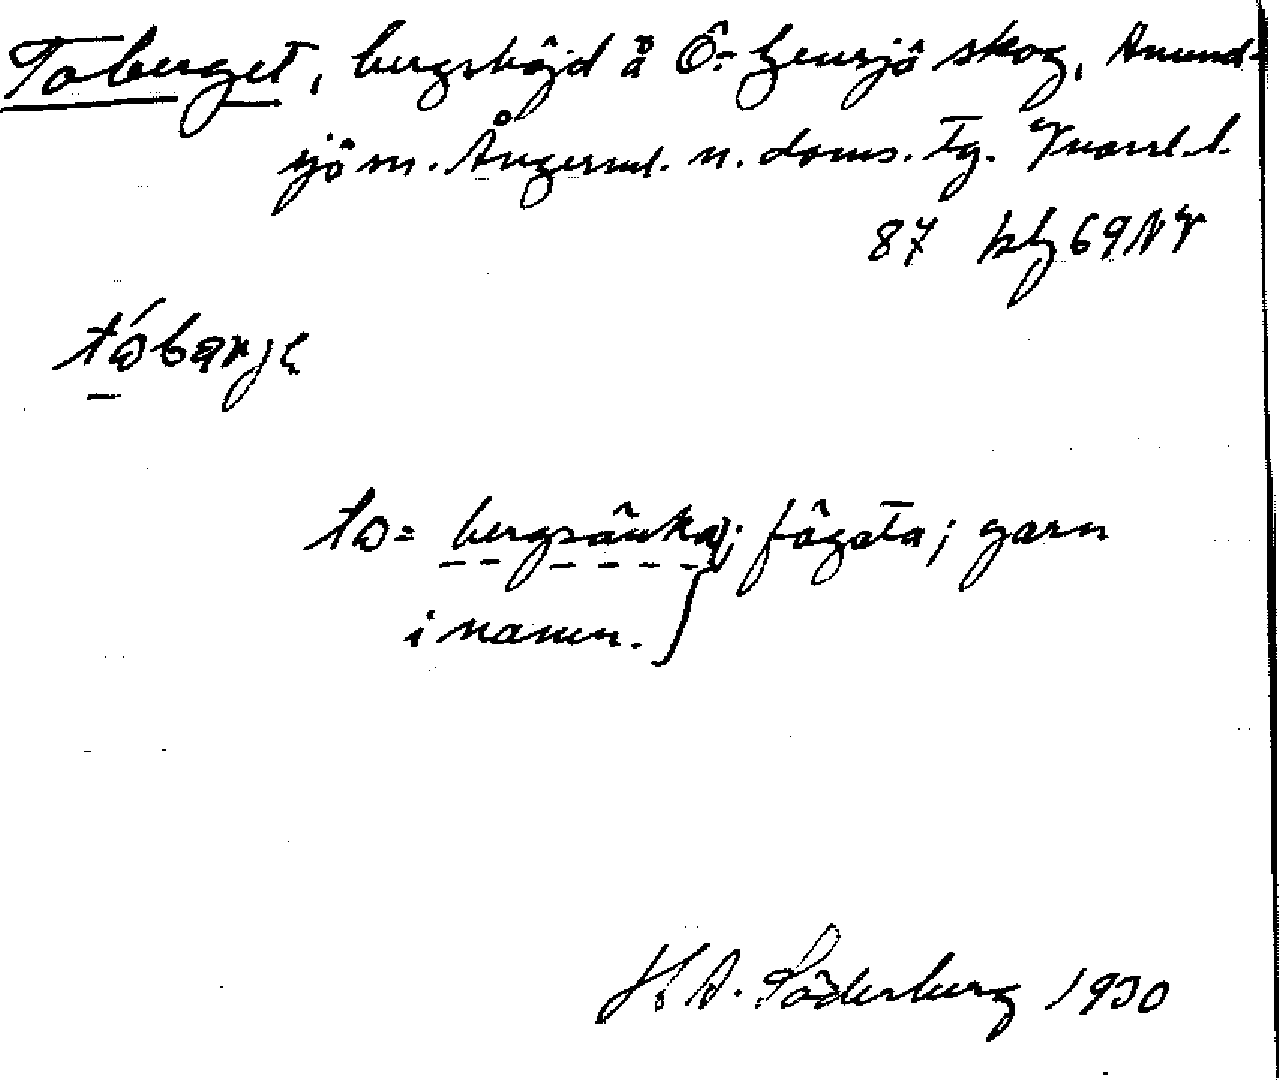 Toberget, bergshöjd å Ö. Gensjö skog, Anund-
sjö sn. Ångerml. n. doms. Tg. 
87 blz 69 NV
tóbarje
to = bergsänka; fägata; garn
i namn.
H. A. Söderberg 1930